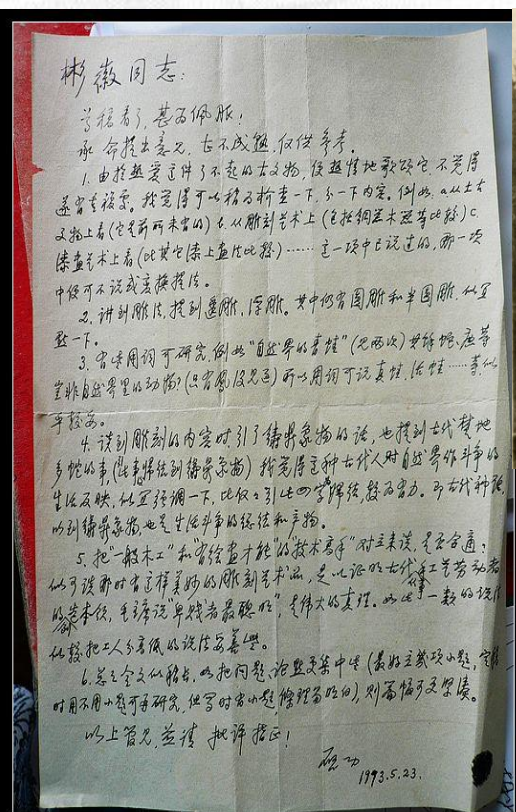 彬徽同志：
尊稿看了，甚为佩服！
承命提出意见，古不成熟，仅供参考。
1. 由于热爱这件了不起的古文物，便热情地歌颂它，不觉得
遂有重复处。我觉得可以稍为检查一下，分一下内容。例如，a从出土
文物上看（它是前所未有的）b.从雕刻艺术上（包括铜器术器等比较）c.
漆画艺术上看（比其它漆上画法比较）……这一项中已说过的，那一项
中便可不说或变换提法。
2. 讲到雕法，提到透雕、浮雕。其中仍有圆雕和半圆雕，似宜
整一下。
3. 有些用词可研究，例如“自然界的青蛙”（凡两次）其雄蛇、鹿等
岂非自然界里的动物？（只有凤没见过）所以用词可说真蛙、活蛙……等似
乎较妥。
4. 谈到雕刻的内容时引了铸鼎象物的话，也提到古代楚地
多蛇的事，（此事归结到铸鼎象物）我觉得这种古代人对自然界作斗争的
生活反映，似宜强调一下，比仅仅引此四字归结，较为有力。而古代种种，
以到铸鼎象物，也是生活斗争的综结和产物。
5. 把“一般木工”和“有绘画才能”的“技术高手”对立来谈，是否合适？
似可谈那时有这样美妙的雕刻艺术品，足以证明古代手工艺劳动者
的基本性，毛主席说“卑贱者最聪明”，是伟大的真理。如此一类的说法
似较把工人分高低的说法妥善些。
6. 总之全文似稍长，如把问题、论点更集中些（最好立几项小题，定稿
时用不用小题可再研究，但写时有小题，条理易明白），则篇幅可更紧凑。
以上管见，并请 批评指正！
启功
1993.5.23.